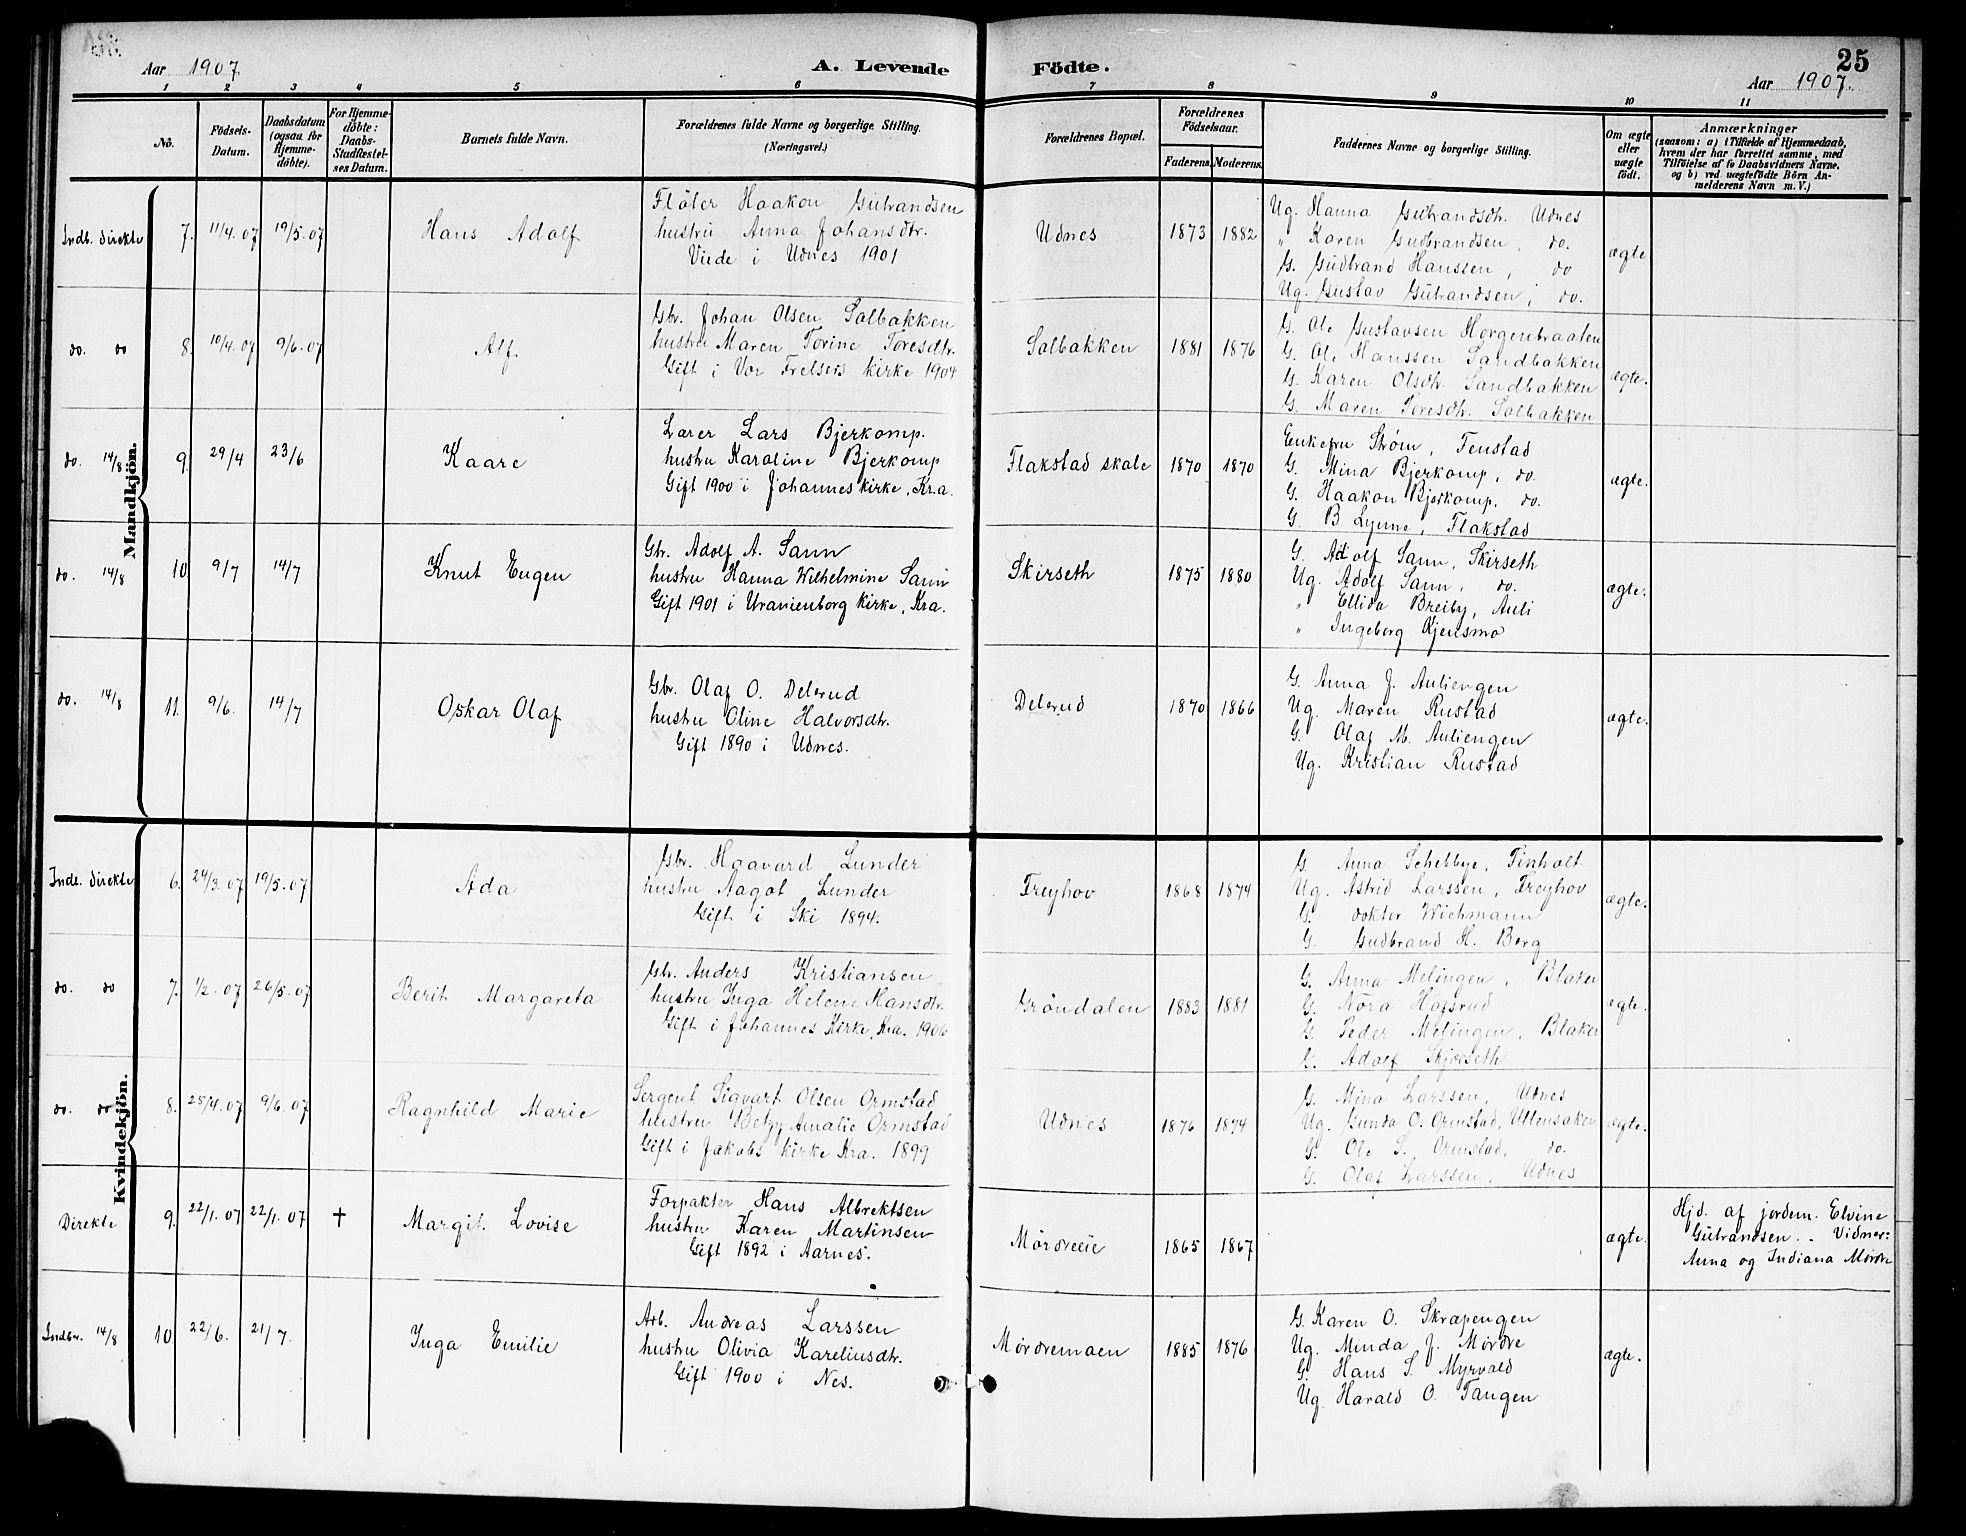 25
Aar 1907
A. Levende Födte.
Aar 1907.
1 2 3 4 5 6 7 8 9 10 11
No.
Födsels-Datum.
Daabsdatum (ogsaa for Hjemme-döbte).
For Hjemme-döbte: Daabs-Stadfæstel-ses Datum.
Barnets fulde Navn.
Forældrenes fulde Navne og borgerlige Stilling.
(Næringsvei.)
Forældrenes Bopæl.
Forældrenes Födselsaar.
Faderens. Moderens.
Faddernes Navne og borgerlige Stilling.
Om ægte eller uægte födt.
Anmærkninger
(saasom: a) i Tilfælde af Hjemmedaab,
hvem der har forrettet samme, med
Tilföielse af to Daabsvidners Navne,
og b) ved uægtefödte Börn An-
melderens Navn m. V.)
Mandkjön.
Indb. direkte 7. 11/4. 07 19/5. 07 Hans Adolf
Fløter Haakon Gulbrandsen
hustru Anna Johansdtr.
Viede i Udnes 1901
Udnes 1873 1882
Ug. Hanna Gulbrandsdtr. Udnes
" Karen Gudbrandsen, do.
G. Gudbrand Hanssen, do
Ug. Gustav Gulbrandsen, do.
ægte
do. do 8. 10/4. 07 9/6. 07 Alf.
Gbr. Johan Olsen Solbakken
hustru Maren Torine Toresdtr.
Gift i Vor Frelsers kirke 1904
Solbakken 1881 1876
G. Ole Gustavsen Horgenbraaten
G. Ole Hanssen Sandbakken
G. Karen Olsdtr. Sandbakken
G. Maren Toresdtr. Solbakken
ægte.
do. 14/8 9. 29/4 23/6 Kaare
Lærer Lars Bjerkomp.
hustru Karoline Bjerkomp
Gift 1900 i Johannes kirke, Kr.a.
Flakstad skole 1870 1870
Enkefru Strøm, Fenstad
G. Mina Bjerkomp, do.
G. Haakon Bjerkomp, do.
G. B Lynne, Flakstad
ægte.
do. 14/8 10 9/7 14/7 Knut Eugen
Gbr. Adolf A. Sann
hustru Hanna Wilhelmine Sann
Gift 1901 i Uranienborg kirke, Kra.
Skirseth 1875 1880
G. Adolf Sann, Skirseth
Ug. Adolf Sann, do.
" Ellida Breiby, Auli
" Ingeborg Kjensmo
ægte.
do. 14/8 11. 9/6. 14/7 Oskar Olaf
Gbr. Olaf O. Delerud
hustru Oline Halvorsdtr.
Gift 1890 i Udnes.
Delerud 1870 1866
G. Anna J. Auliengen
Ug. Maren Rustad
G. Olaf M. Auliengen
Ug. Kristian Rustad
ægte.
Kvindekjön.
Indb. direkte 6. 24/3. 07 19/5. 07 Ada
Gbr. Haavard Lunder
hustru Aagot Lunder
Gift i Ski 1894.
Freyhov 1868 1874
G. Anna Schebbye, Finholt
Ug. Astrid Larssen, Freyhov
G. dokter Wichmann
G. Gudbrand H. Berg
ægte.
do. do 7. 1/2. 07 26/5. 07 Berit Margareta
Gbr. Anders Kristiansen
hustru Inga Helene Hansdtr.
Gift i Johannes Kirke, Kra. 1906
Grøndalen 1883 1881
G. Anna Melingen, Blaker
G. Nora Hofsrud
G. Peder Melingen, Blaker
G. Adolf Skjoeseth
ægte.
do. do 8. 25/4. 07 9/6. 07 Ragnhild Marie
Sergent Sigvart Olsen Ormstad
hustru Betzy Amalie Ormstad
Gift i Jakobs kirke Kra. 1899
Udnes 1876 1874
G. Mina Larssen, Udnes
Ug. Gunda O. Ormstad, Ullensaker
G. Ole S. Ormstad, do.
G. Olaf Larssen, Udnes
ægte.
Direkte 9. 22/1. 07 22/1. 07 † Margit Lovise
Forpakter Hans Albrektsen
hustru Karen Martinsen
Gift 1892 i Aarnes.
Mørdreeie 1865 1867
ægte.
Hjd. af jordem. Elvine
Gulbrandsen. - Vidner:
Anna og Indiana Mørdre
Indbr. 14/8 10 22/6. 21/7. Inga Emilie
Arb. Andreas Larssen
hustru Olivia Kareliusdtr.
Gift 1900 i Nes.
Mørdremoen 1885 1876
G. Karen O. Skrapengen
Ug. Minda J. Mørdre
G. Hans S. Myrvold
Ug. Harald O. Tangen
ægte.